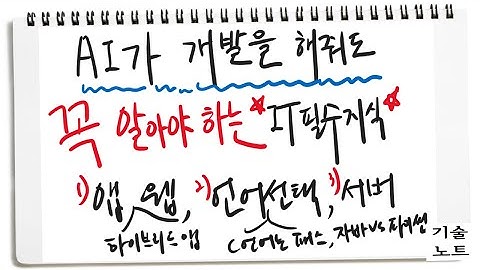 AI가 개발을 해줘도
꼭 알아야 하는 *IT필수지식*
1) 앱 웹, 2) 언어선택, 3) 서버
하이브리드 앱 C언어는 패스, 자바 vs 파이썬
기술
노트